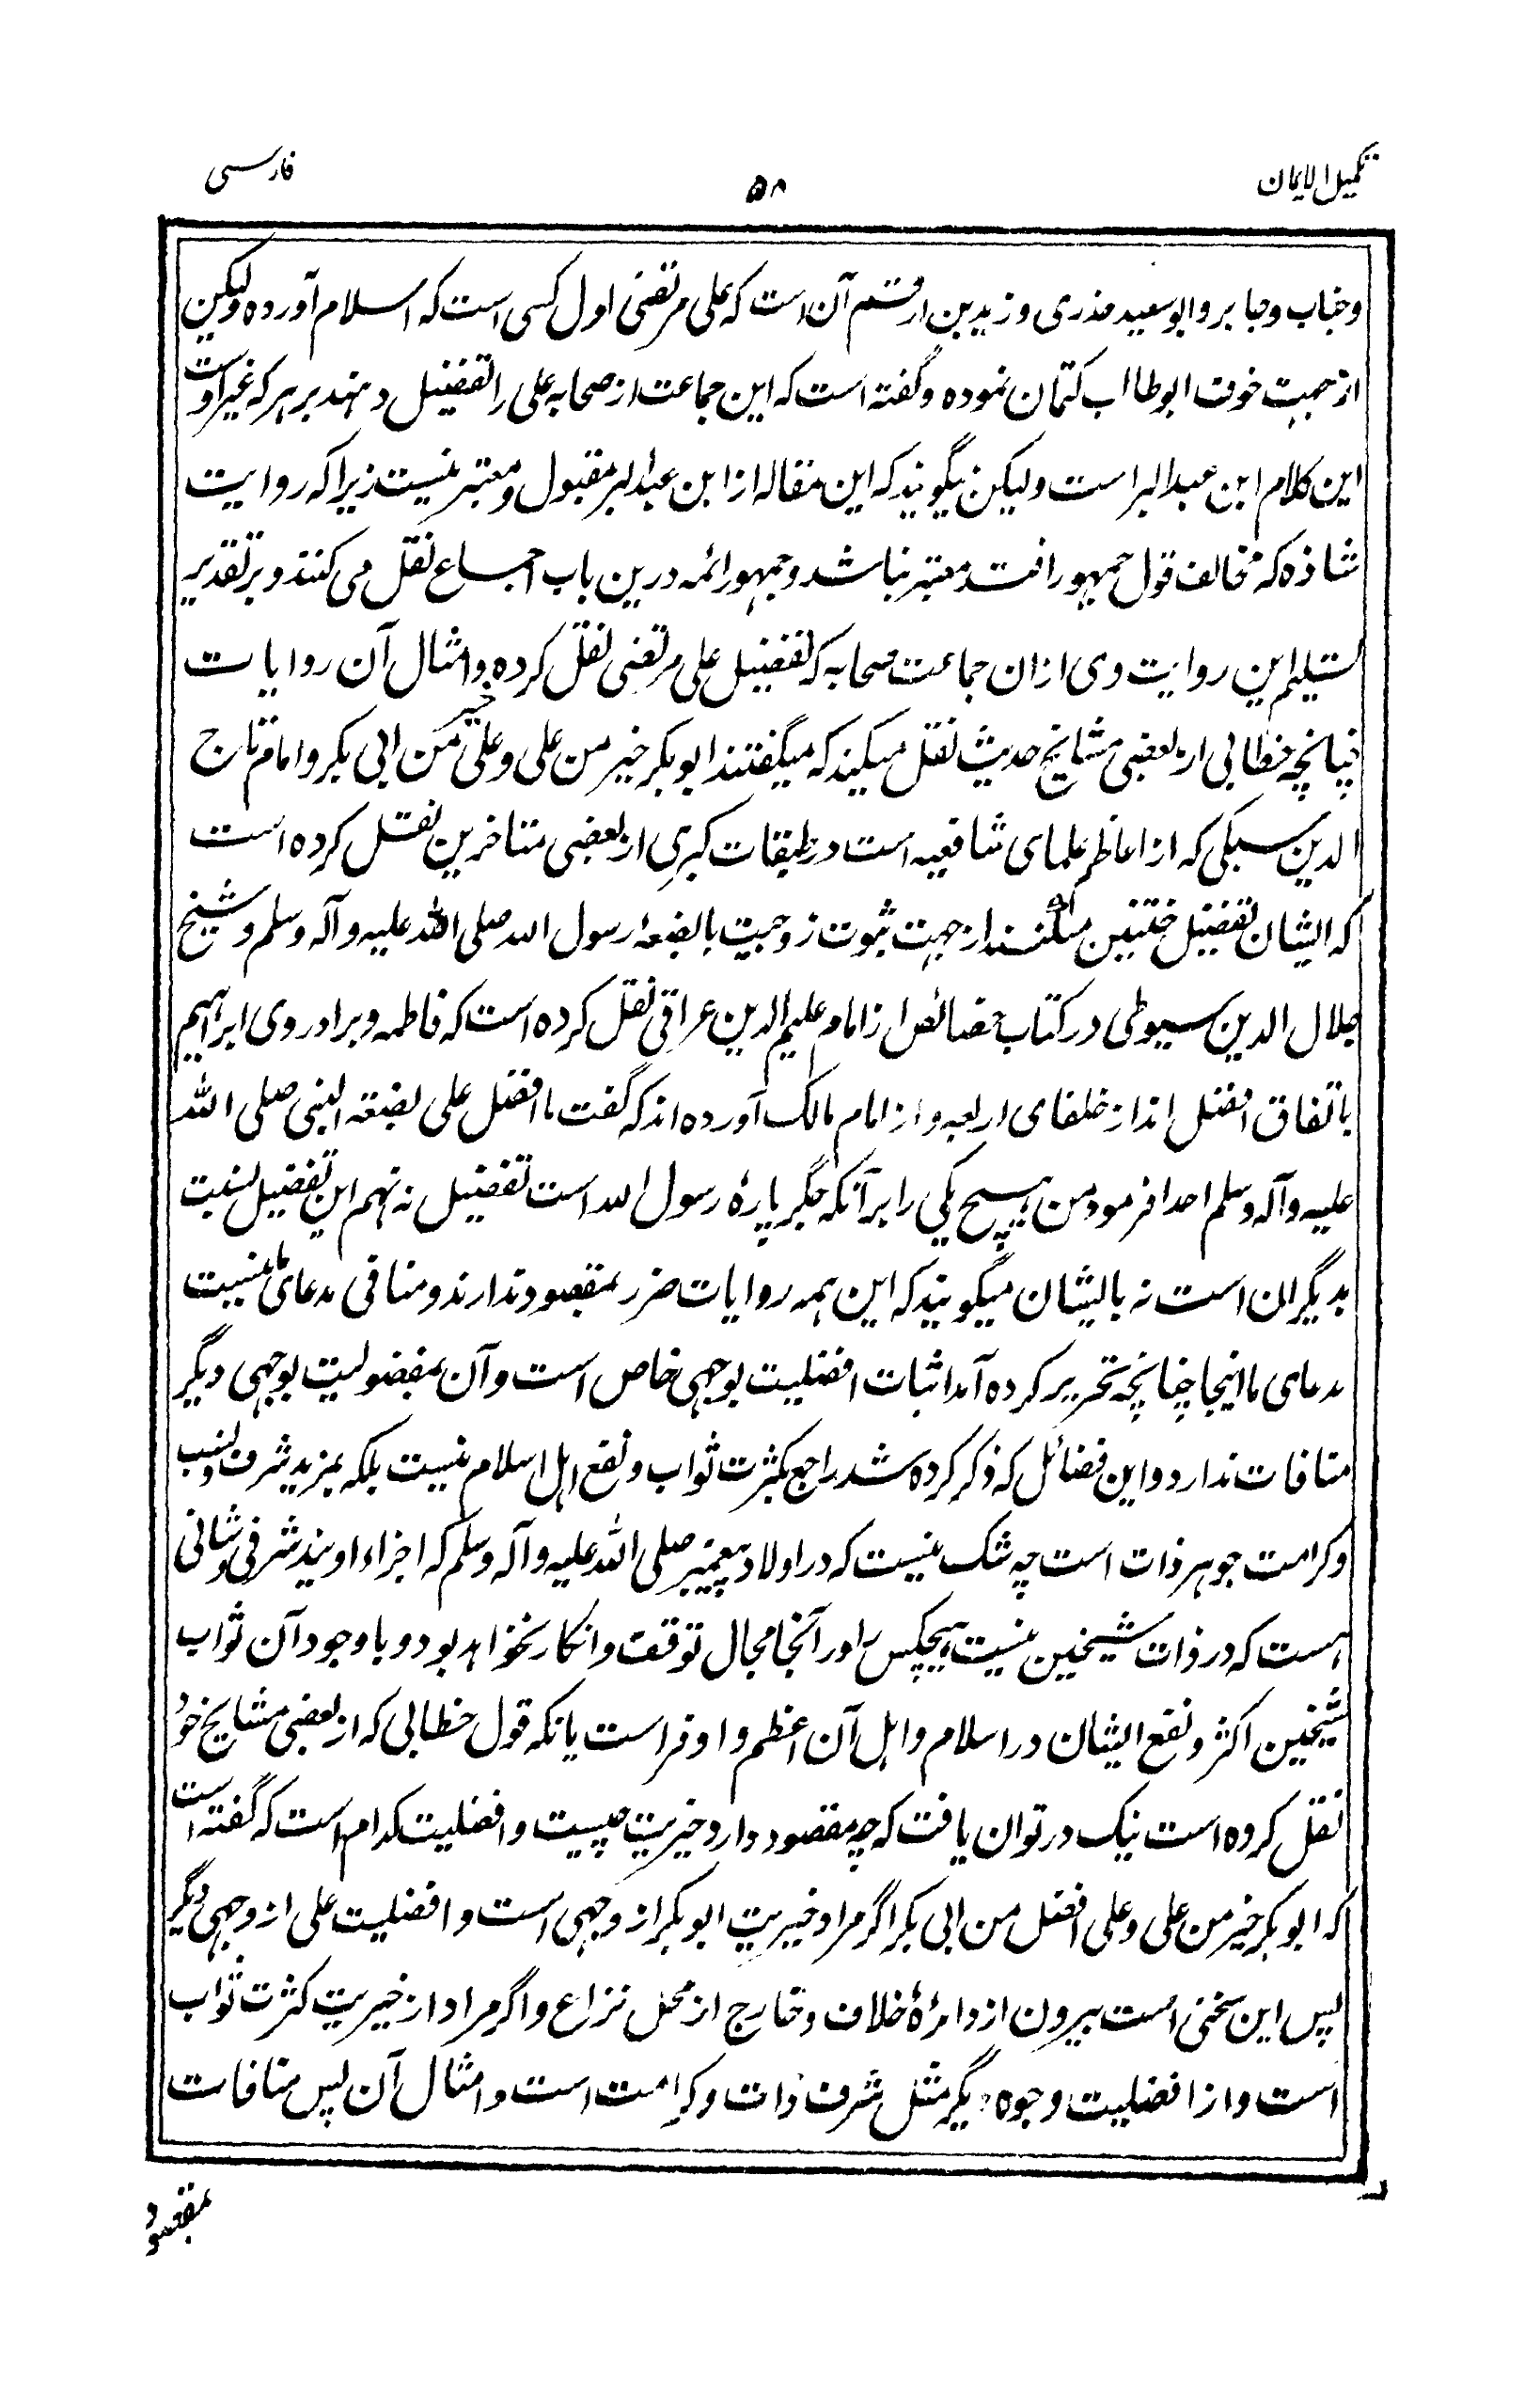 تکمیل الایمان
۵۸
فارسی
وخباب وجابر وابوسعید خدری وزید بن ارقم آن است که علی مرتضی اول کسی است که اسلام آورده ولیکن
از جهت خوف ابوطالب کتمان نموده وگفته است که این جماعت از صحابه علی را تفضیل دهند بر هر که غیر اوست
این کلام ابن عبدالبر است ولیکن میگویند که این مقاله از ابن عبدالبر مقبول ومعتبر نیست زیرا که روایت
شاذه که مخالف قول جمهور افتد معتبر نباشد وجمهور ائمه درین باب اجماع نقل می کنند وبر تقدیر
تسلیم این روایت وی ازان جماعت صحابه که تفضیل علی مرتضی نقل کرده وامثال آن روایات
چنانچه خطابی از بعضی مشایخ حدیث نقل میکند که میگفتند ابوبکر خیر من علی وعلی خیر من ابی بکر وامام تاج
الدین سبکی که از اعاظم علمای شافعیه است در طبقات کبری از بعضی متاخرین نقل کرده است
که ایشان تفضیل ختنین میکنند از جهت ثبوت زوجیت با بضعهٔ رسول الله صلی الله علیه وآله وسلم وشیخ
جلال الدین سیوطی در کتاب خصائص از امام علیم الدین عراقی نقل کرده است که فاطمه وبرادر وی ابراهیم
باتفاق افضل اند از خلفای اربعه واز امام مالک آورده اند که گفت ما افضل علی بضعة النبی صلی الله
علیه وآله وسلم احدا فرمود من هیچ یکی را بر آنکه جگر پارهٔ رسول الله است تفضیل نه نهم این تفضیل نسبت
بدیگران است نه بایشان میگویند که این همه روایات ضرر بمقصود ندارند ومنافی مدعای ما نیست
مدعای ما اینجا چنانچه تحریر کرده آمد اثبات افضلیت بوجهی خاص است وآن بمفضولیت بوجهی دیگر
منافات ندارد واین فضائل که ذکر کرده شد راجع بکثرت ثواب ونفع اهل اسلام نیست بلکه بمزید شرف ونسب
وکرامت جوهر ذات است چه شک نیست که در اولاد پیغمبر صلی الله علیه وآله وسلم که اجزاء اویند شرفی وشانی
هست که در ذات شیخین نیست هیچکس را در آنجا مجال توقف وانکار نخواهد بود وباوجود آن ثواب
شیخین اکثر ونفع ایشان در اسلام واهل آن اعظم واوفر است یا نکه قول خطابی که از بعضی مشایخ خود
نقل کرده است نیک در توان یافت که چه مقصود دارد خیریت چیست وافضلیت کدام است که گفته است
که ابوبکر خیر من علی وعلی افضل من ابی بکر اگر مراد خیریت ابوبکر از وجهی است وافضلیت علی از وجهی دیگر
پس این سخنی است بیرون از دائرهٔ خلاف وخارج از محل نزاع واگر مراد از خیریت کثرت ثواب
است واز افضلیت وجوه دیگر مثل شرف ذات وکرامت است وامثال آن پس منافات
بمقصود